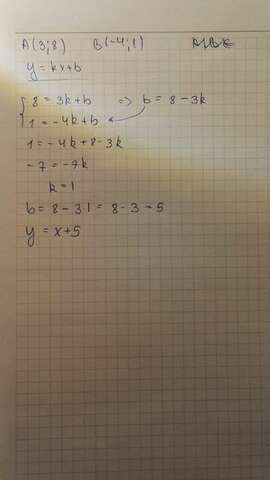 A(3;8) B(-4;1)
y = kx+b
8 = 3k+b => b = 8-3k
1 = -4k+b
1 = -4k+8-3k
-7 = -7k
k = 1
b = 8-3·1 = 8-3=5
y = x+5